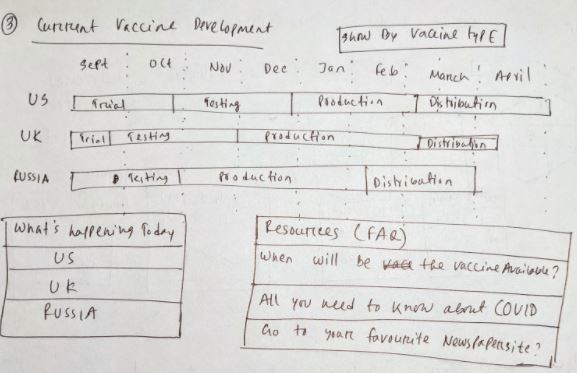 ③ Current Vaccine Development
Show By Vaccine type
Sept Oct Nov Dec Jan Feb March April
US Trial Testing Production Distribution
UK Trial Testing Production Distribution
RUSSIA Testing Production Distribution
What's happening Today
US
UK
RUSSIA
Resources (FAQ)
When will be the vaccine Available?
All you need to know about COVID
Go to your favourite Newspapersite?